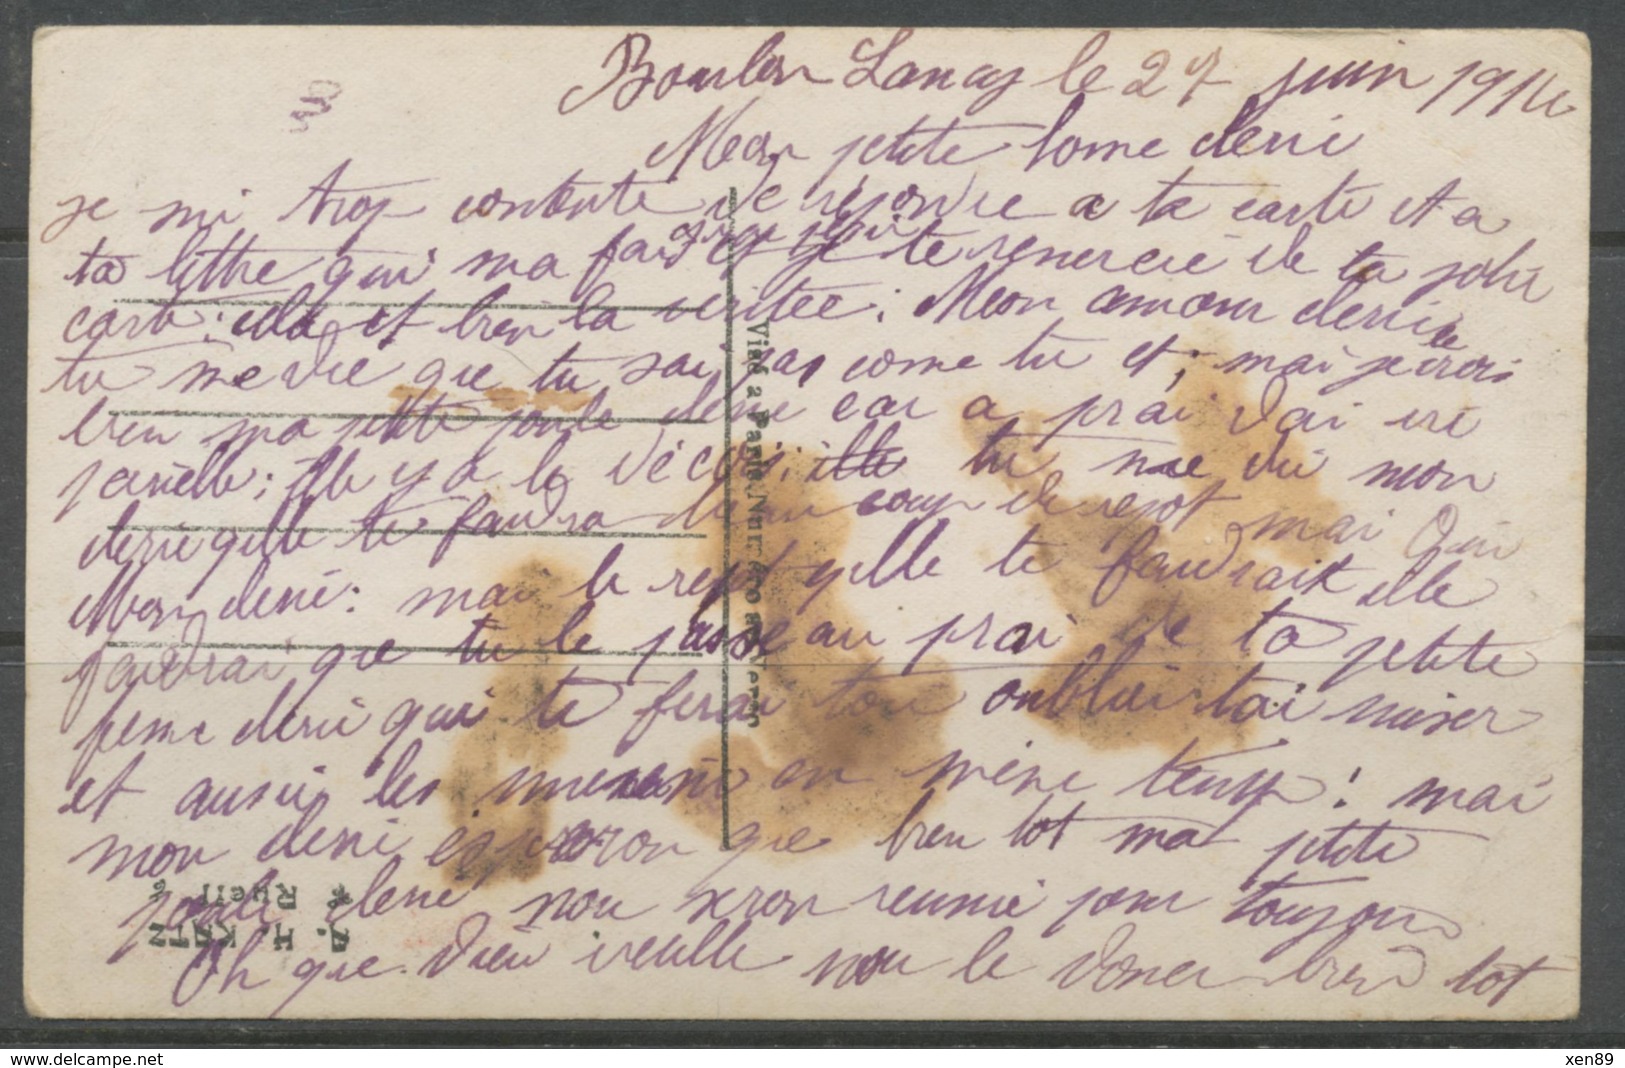 Bourbon Lancy le 27 juin 191
Mon petite home cheri
je sui trop contente de repondre a ta carte et a
ta lettre qui ma fais et je te remercie de ta jolie
carte: elle et bien la veritee: Mon amour cheri
tu me die que tu sai pas come tu et; mai je le crois
bien ma petite cheri car a prai
; ille y a le tu me di mon
cheri quille te faudra beaucoup de repot mai Oui
Mon cheri: mai le repot quille te faudrait elle
faudrai que tu le passe au prai de ta petite
feme cheri qui te ferai tou oublier tai miser
et aussi les en mème temp: mai
mon cheri esperon que bien tot ma petite
cheri nou seron reunie pour toujour
Oh que Dieu veulle nou le doner bien tot
Visé a Paris
A. H. KATZ
Rueil
delcampe.net
xen89